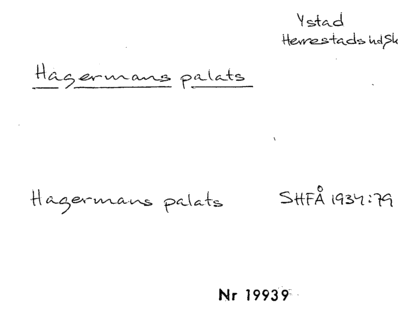 Ystad
Herrestads hd, Sk
Hagermans palats
Hagermans palats SHFÅ 1934:79
Nr 19939